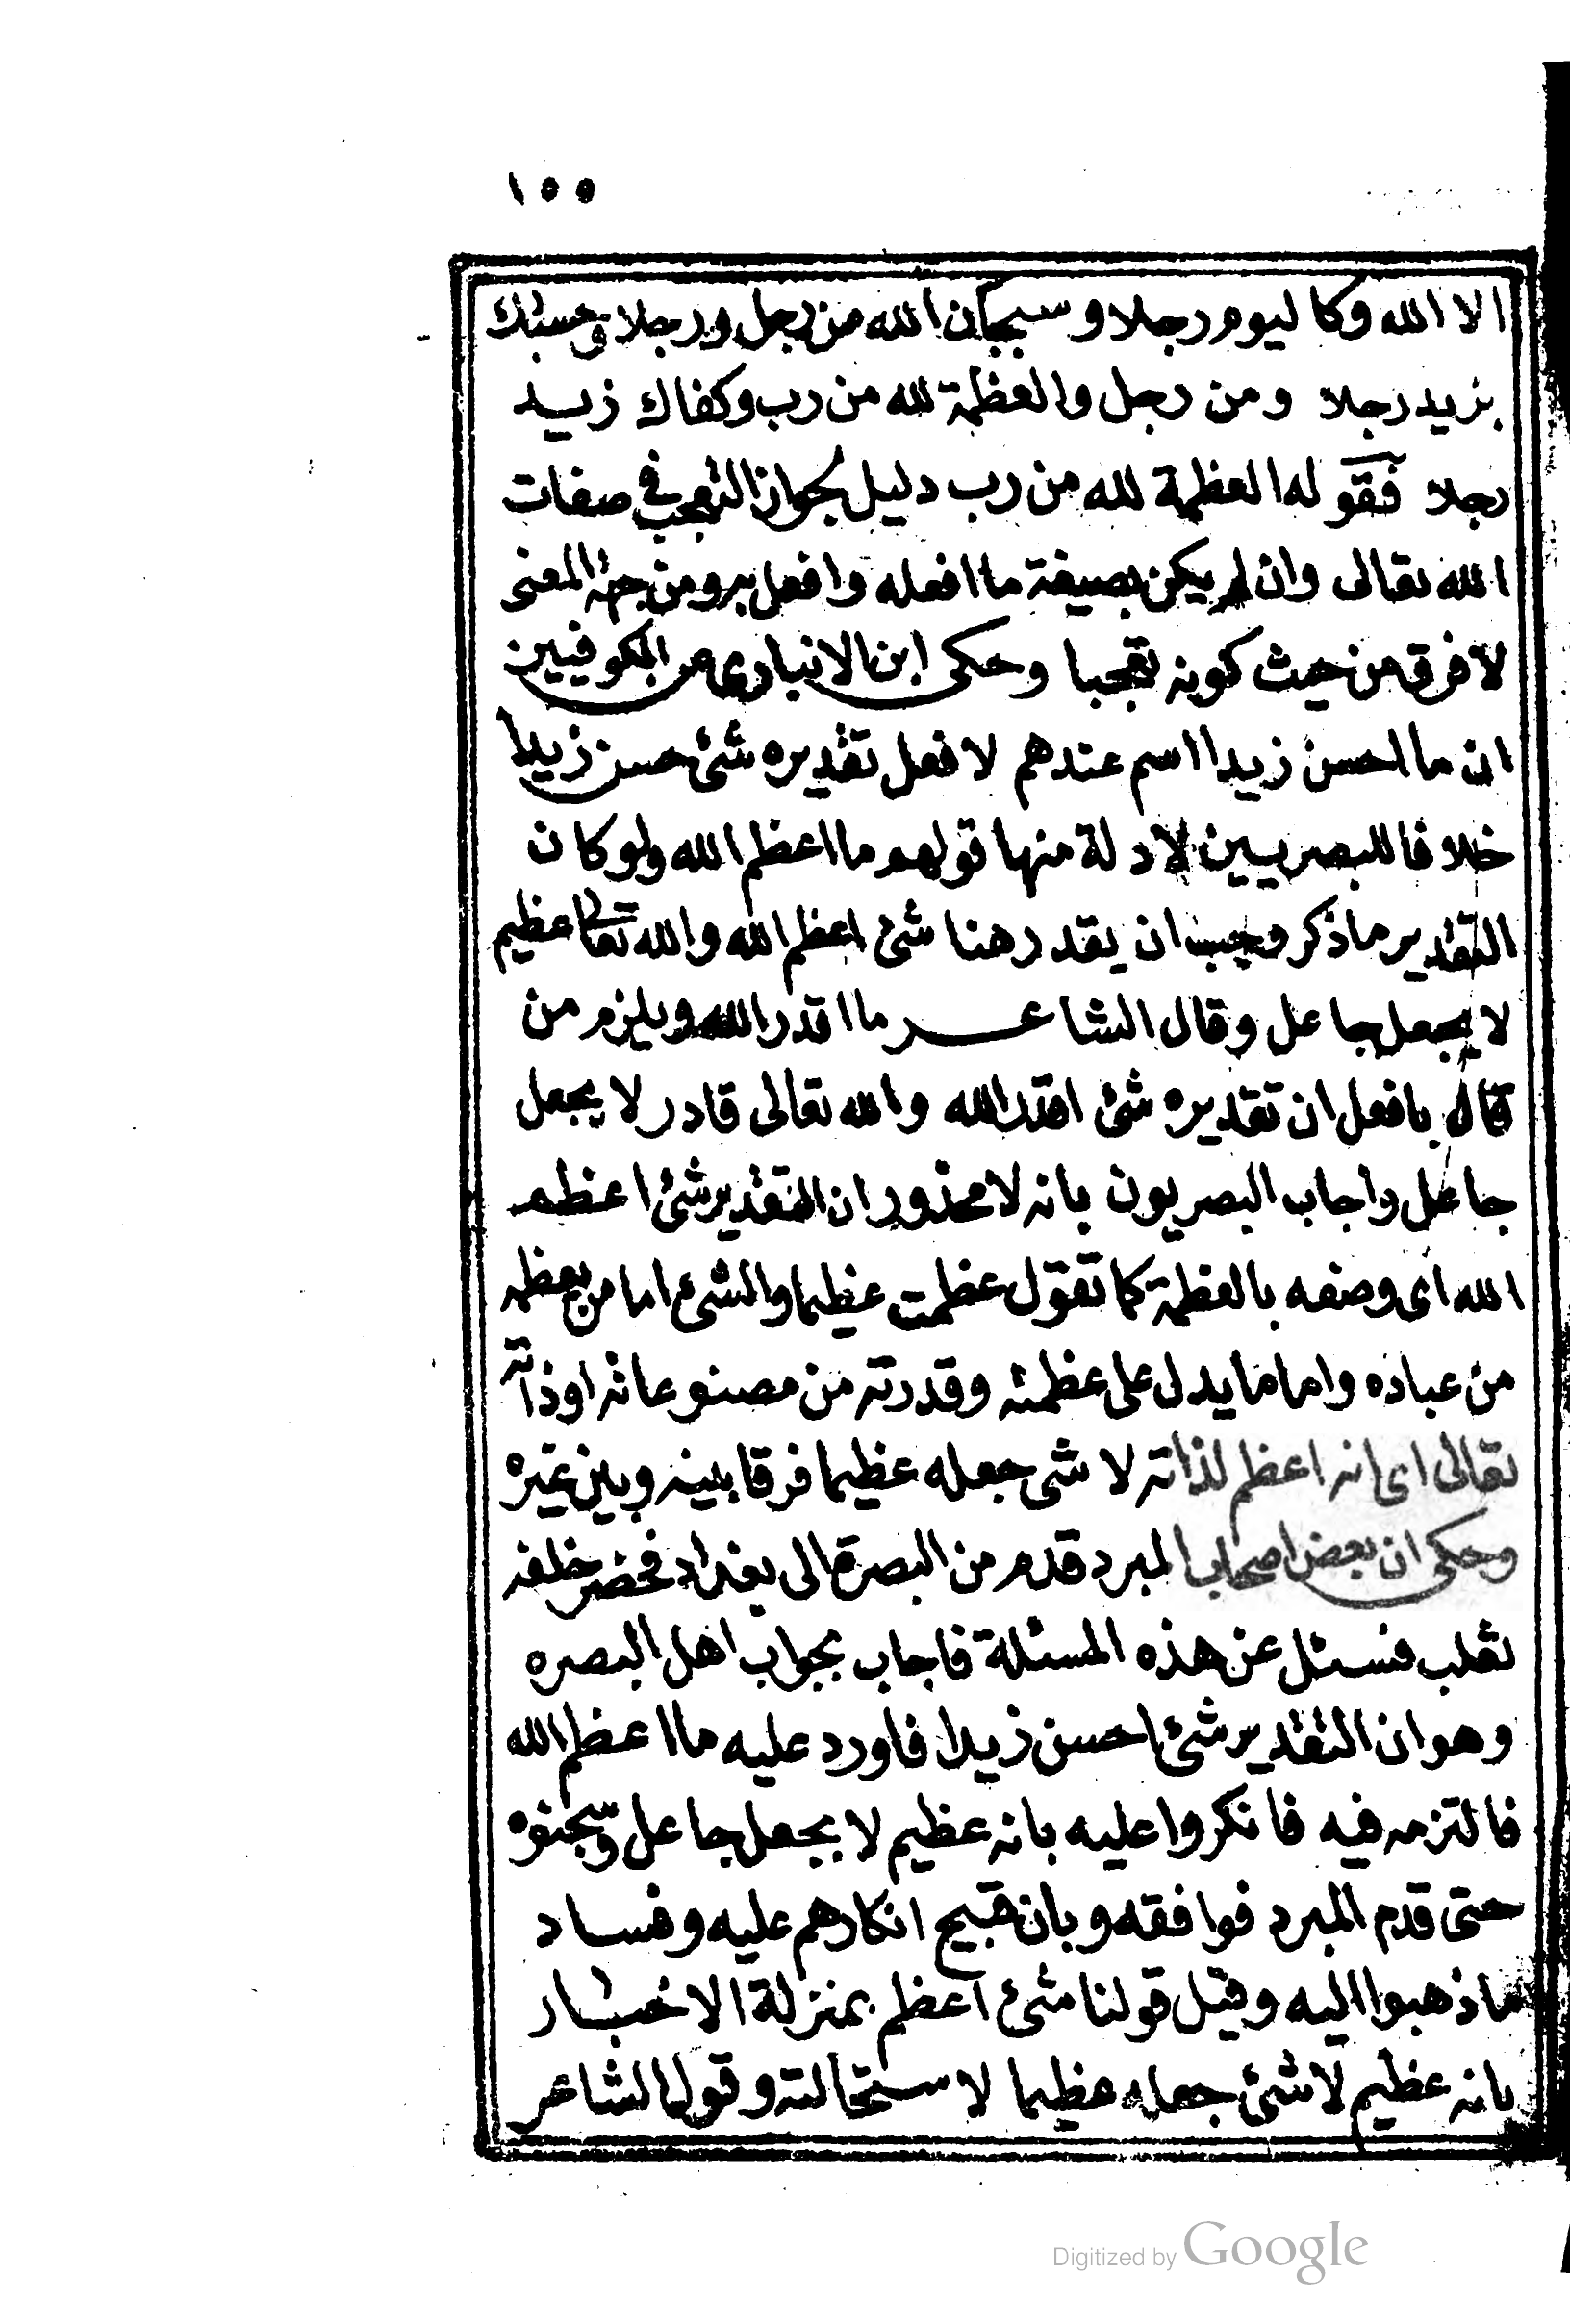 ١٥٥
الا الله وكاليوم رجلا وسبحان الله من رجل ورجلا وحسبك
بزيد رجلا ومن رجل والعظمة لله من رب وكفاك زيد
رجلا فقوله العظمة لله من رب دليل بجواز التعجب في صفات
الله تعالى وان لم يكن بصيغة ما افعله وافعل به ومن جهة المعنى
لا فرق من حيث كونه تعجبا وحكى ابن الانبارى عن الكوفيين
ان ما احسن زيدا اسم عندهم لا فعل تقديره شئ حسن زيدا
خلافا للبصريين لادلة منها قولهم ما اعظم الله ولو كان
التقدير ما ذكر وجب ان يقدر هنا شئ اعظم الله والله تعالى عظيم
لا يجعل جاعل وقال الشاعر ما اقدر الله ويلزم من
قال بافعل ان تقديره شئ اقدر الله والله تعالى قادر لا يجعل
جاعل واجاب البصريون بانه لا محذور ان التقدير شئ اعظم
الله اى وصفه بالعظمة كما تقول عظمت عظيما والشئ اما من يعظمه
من عباده واما ما يدل على عظمته وقدرته من مصنوعاته او ذاته
تعالى اى انه اعظم لذاته لا شى جعله عظيما فرقا بينه وبين غيره
وحكى ان بعض اصحاب المبرد قدم من البصرة الى بغداد فحضر خلفه
ثعلب فسئل عن هذه المسئلة فاجاب بجواب اهل البصره
وهو ان التقدير شئ احسن زيدا فاورد عليه ما اعظم الله
فالتزمه فيه فانكروا عليه بانه عظيم لا بجعل جاعل وسجنوه
حتى قدم المبرد فوافقه وبان قبيح انكارهم عليه وفساد
ما ذهبوا اليه وقيل قولنا شئ اعظم بمنزلة الاخبار
بانه عظيم لا شئ جعله عظيما لاستحالته وقول الشاعر
Digitized by Google